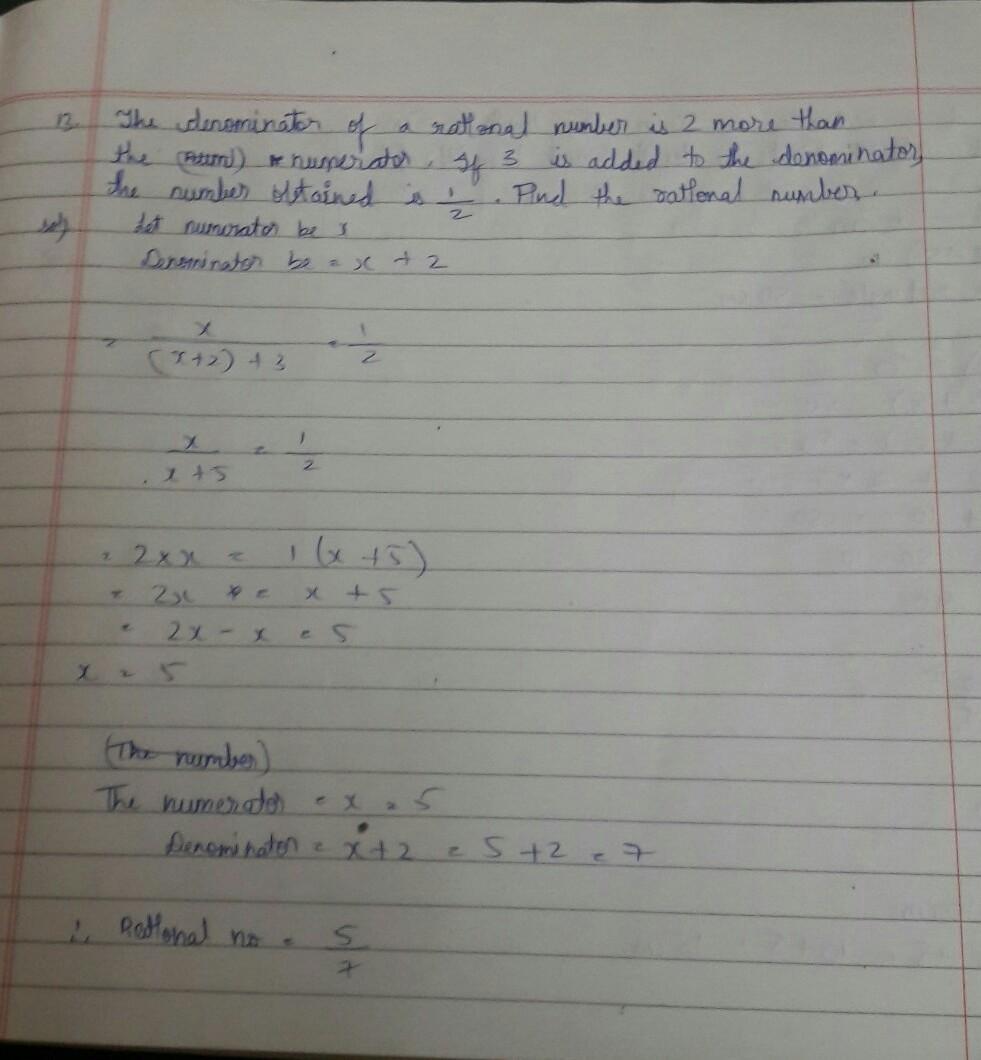 12. The denominator of a rational number is 2 more than
the numerator. If 3 is added to the donominator,
the number obtained is 1/2. Find the rational number.
sol) Let numerator be x
Denominator be = x + 2
= x/((x+2) + 3) = 1/2
x/(x+5) = 1/2
= 2 × x = 1(x+5)
= 2x = x + 5
= 2x - x = 5
x = 5
(The number)
The numerator = x = 5
Denominator = x+2 = 5+2 = 7
∴ Rational no = 5/7